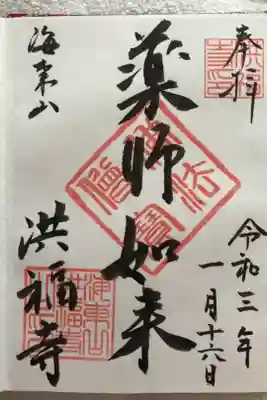 奉拝
令和三年
一月十六日
薬師如来
海東山
洪福寺